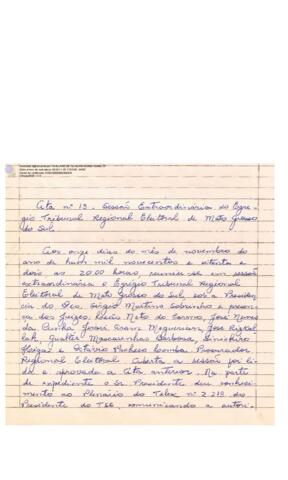 Ata nº 13. Sessão Extraordinária do Egré-
gio Tribunal Regional Eleitoral de Mato Grosso
do Sul
Aos onze dias do mês de novembro do
ano de hum mil novecentos e oitenta e
dois às 20:00 horas, reuniu-se em sessão
extraordinária o Egrégio Tribunal Regional
Eleitoral de Mato Grosso do Sul, sob a Presidên-
cia do Des. Sérgio Martins Sobrinho e presen-
ça dos Juízes Leão Neto do Carmo, José Nunes
da Cunha, José Rizkal
lah, Gualter Mascarenhas Barbosa,
e Octávio Pacheco Lomba Procurador
Regional Eleitoral. Aberta a sessão foi li-
da e aprovada a Ata anterior. Na parte
de expediente o Sr Presidente deu conheci-
mento ao Plenário do Telex nº 2.218 do
Presidente do TSE, comunicando a autori-